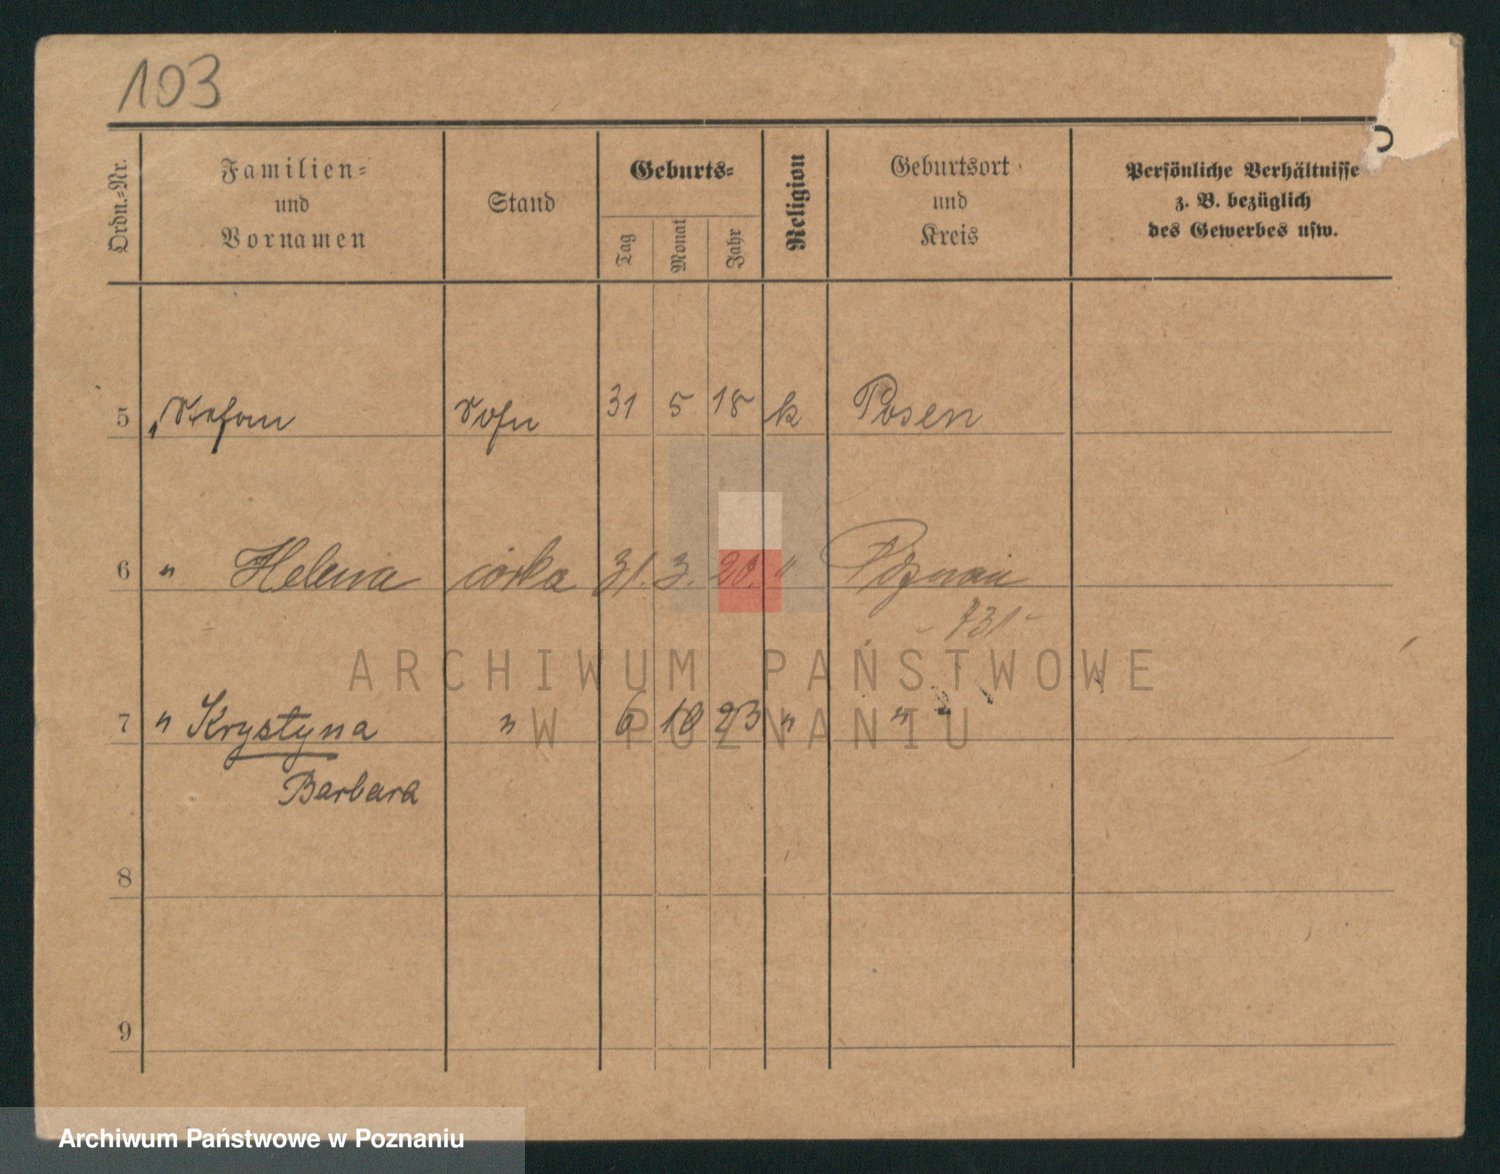 103
Ordn.-Nr.
Familien-
und
Vornamen
Stand
Geburts-
Tag
Monat
Jahr
Religion
Geburtsort
und
Kreis
Persönliche Verhältnisse
z. B. bezüglich
des Gewerbes usw.
5 " Stefan Sohn 31 5 18 k Posen
6 " Helena córka 31. 3. 20. " Poznań
7 " Krystyna " 6 10 23 " "
Barbara
8
9
ARCHIWUM PAŃSTWOWE
W POZNANIU
Archiwum Państwowe w Poznaniu